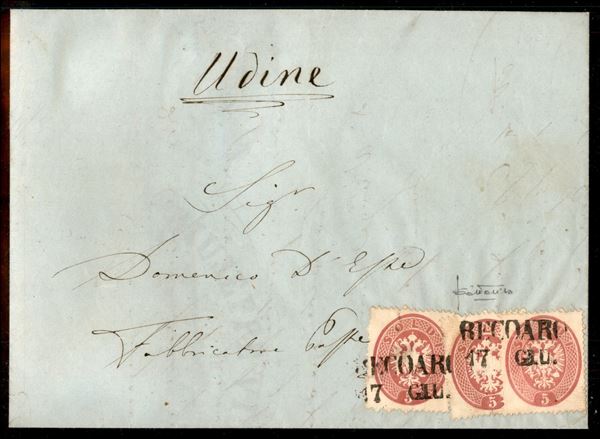 Udine
Sigr
Domenico D'Este
Fabbricatore
SOLDI
RECOARO
17 GIU.
RECOARO
17 GIU.
5
5
5